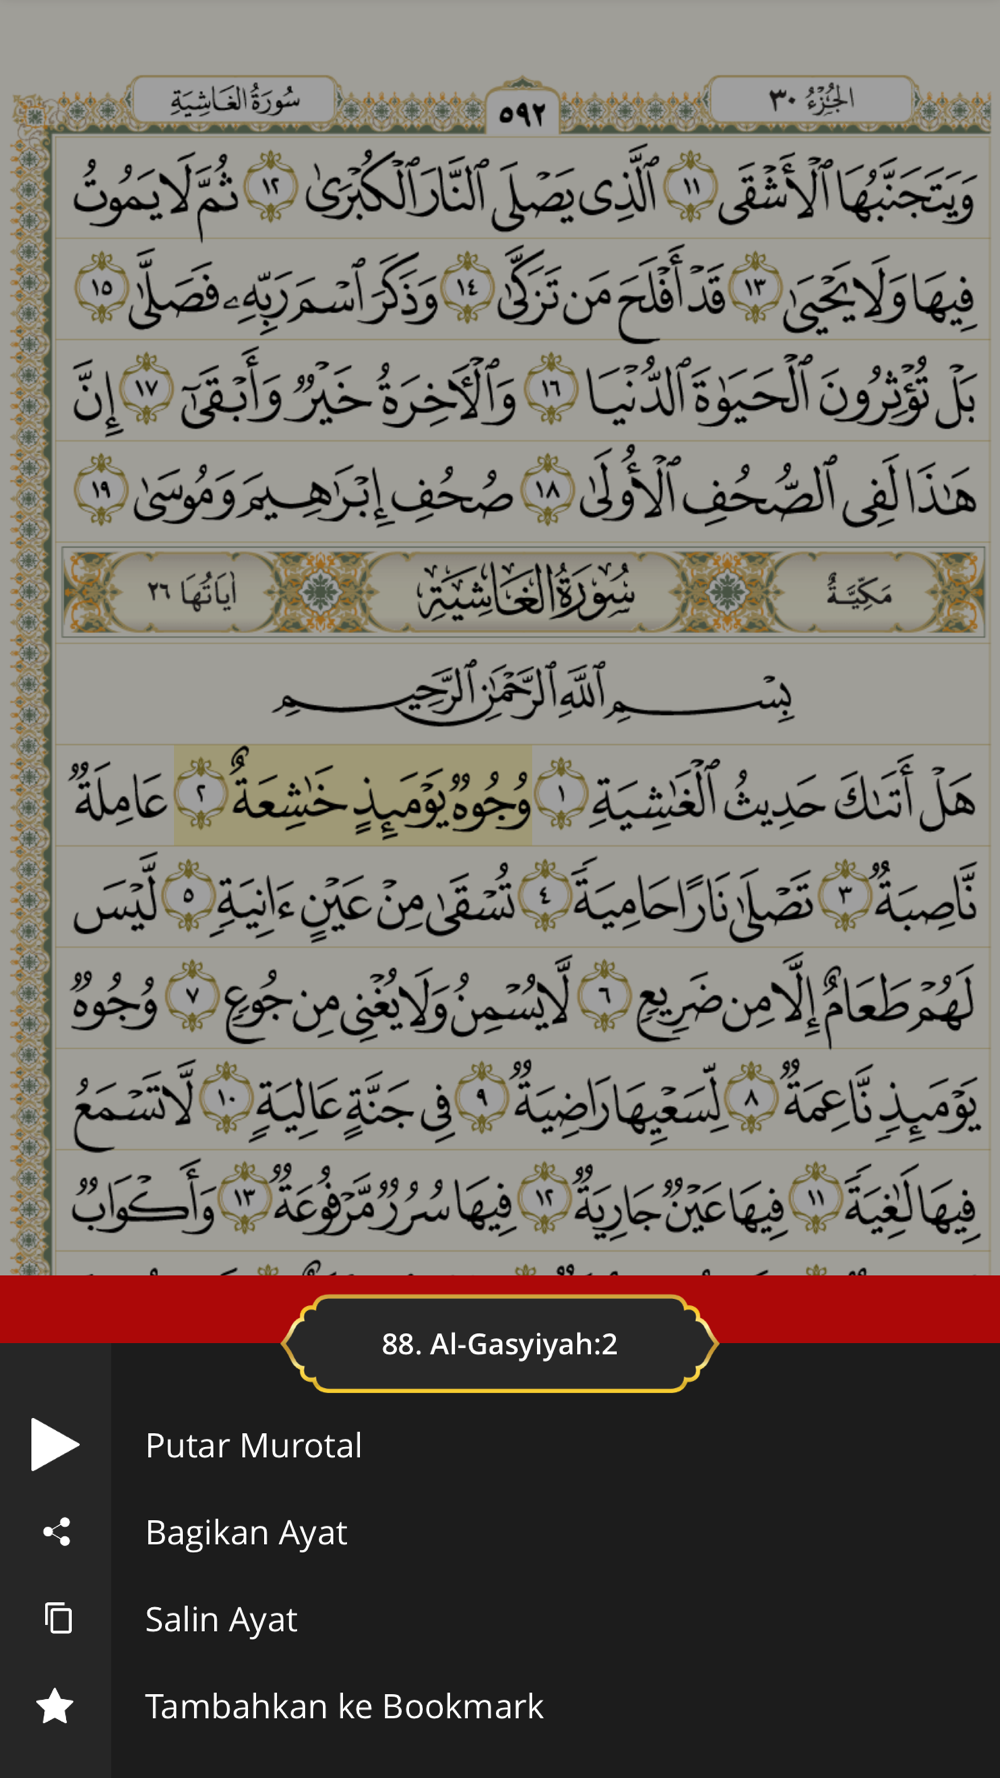 سُورَةُ الغَاشِيَةِ ٥٩٢ الجُزْءُ ٣٠
وَيَتَجَنَّبُهَا ٱلْأَشْقَى ١١ ٱلَّذِى يَصْلَى ٱلنَّارَ ٱلْكُبْرَىٰ ١٢ ثُمَّ لَا يَمُوتُ
فِيهَا وَلَا يَحْيَىٰ ١٣ قَدْ أَفْلَحَ مَن تَزَكَّىٰ ١٤ وَذَكَرَ ٱسْمَ رَبِّهِۦ فَصَلَّىٰ ١٥
بَلْ تُؤْثِرُونَ ٱلْحَيَوٰةَ ٱلدُّنْيَا ١٦ وَٱلْأَخِرَةُ خَيْرٌ وَأَبْقَىٰٓ ١٧ إِنَّ
هَـٰذَا لَفِى ٱلصُّحُفِ ٱلْأُولَىٰ ١٨ صُحُفِ إِبْرَٰهِيمَ وَمُوسَىٰ ١٩
مَكِّيَّةٌ سُورَةُ الغَاشِيَةِ اٰيَاتُهَا ٢٦
بِسْمِ ٱللَّهِ ٱلرَّحْمَٰنِ ٱلرَّحِيمِ
هَلْ أَتَىٰكَ حَدِيثُ ٱلْغَٰشِيَةِ ١ وُجُوهٌ يَوْمَئِذٍ خَٰشِعَةٌ ٢ عَامِلَةٌ
نَّاصِبَةٌ ٣ تَصْلَىٰ نَارًا حَامِيَةً ٤ تُسْقَىٰ مِنْ عَيْنٍ ءَانِيَةٍ ٥ لَّيْسَ
لَهُمْ طَعَامٌ إِلَّا مِن ضَرِيعٍ ٦ لَّا يُسْمِنُ وَلَا يُغْنِى مِن جُوعٍ ٧ وُجُوهٌ
يَوْمَئِذٍ نَّاعِمَةٌ ٨ لِّسَعْيِهَا رَاضِيَةٌ ٩ فِى جَنَّةٍ عَالِيَةٍ ١٠ لَّا تَسْمَعُ
فِيهَا لَٰغِيَةً ١١ فِيهَا عَيْنٌ جَارِيَةٌ ١٢ فِيهَا سُرُرٌ مَّرْفُوعَةٌ ١٣ وَأَكْوَابٌ
88. Al-Gasyiyah:2
Putar Murotal
Bagikan Ayat
Salin Ayat
Tambahkan ke Bookmark